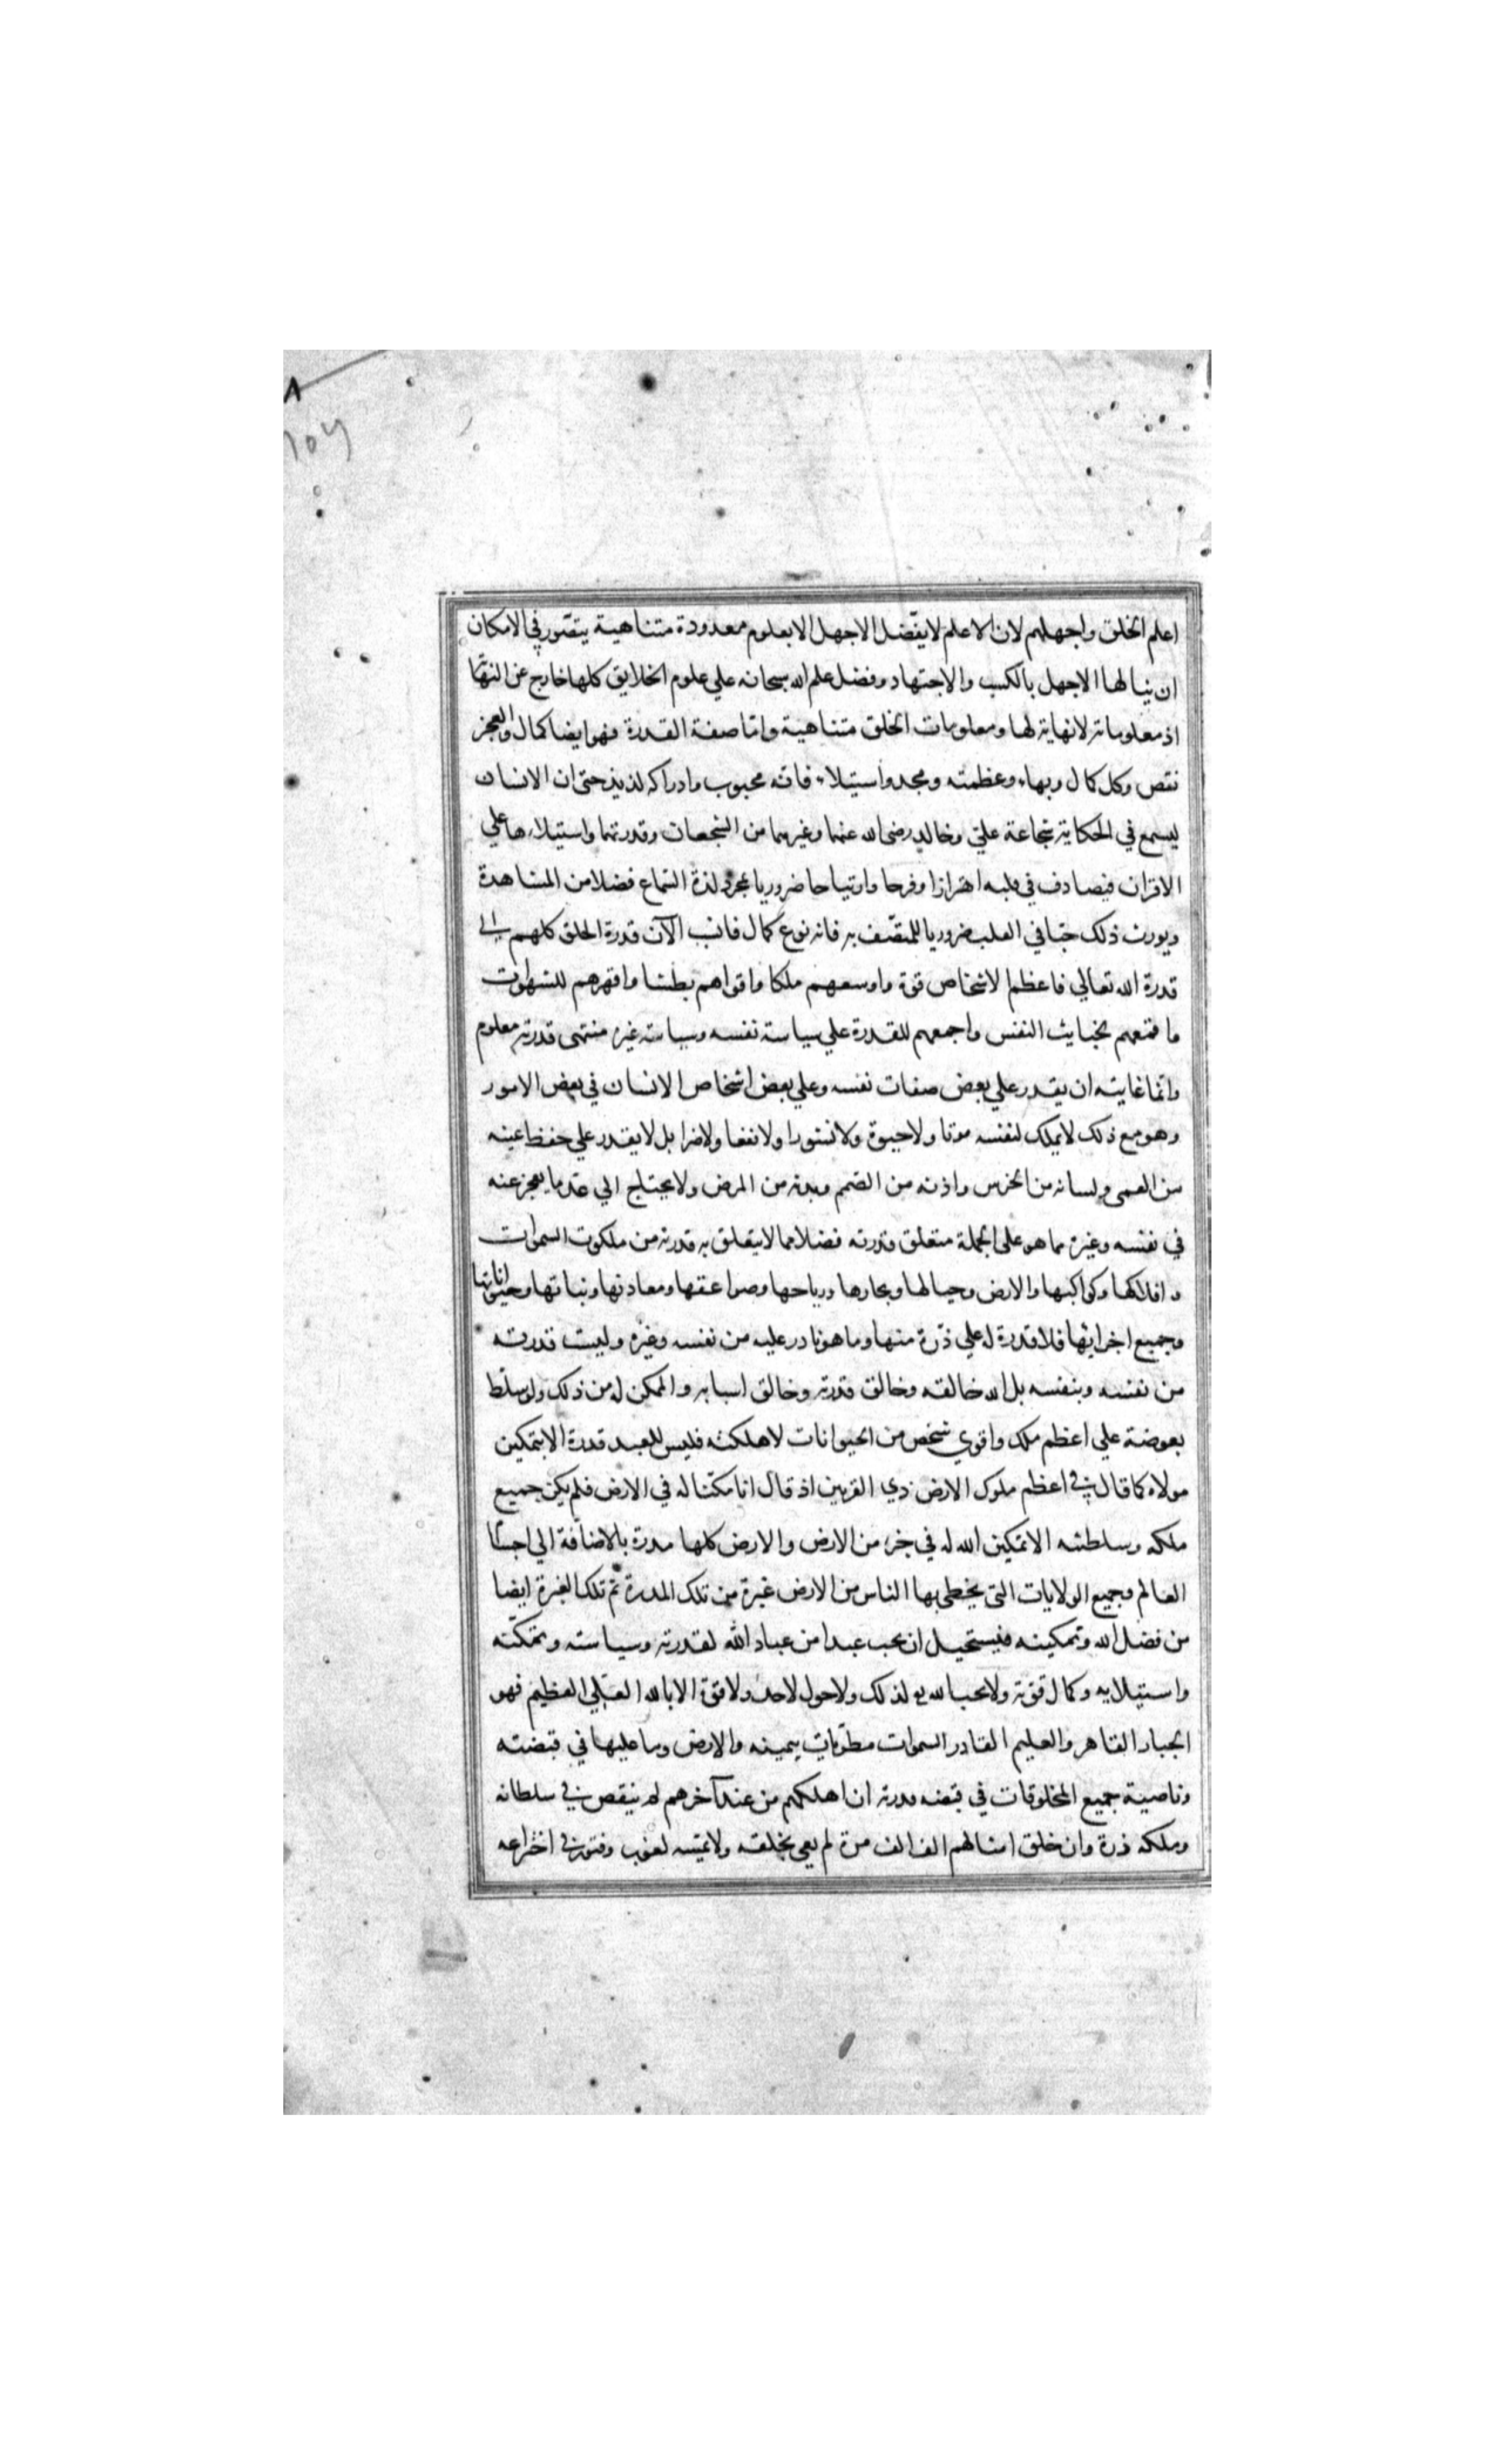 ٨
اعلم الخلق واجهلهم لان الاعلم لا يفضل الاجهل الا بعلوم معدودة متناهية يتصور في الامكان
ان ينالها الاجهل بالكسب والاجتهاد وفضل علم الله سبحانه علي علوم الخلايق كلها خارج عن النهاية
اذ معلوماته لا نهاية لها ومعلومات الخلق متناهية واما صفة القدرة فهو ايضا كمال والعجز
نقص وكل كمال وبهاء وعظمته ومجد واستيلاء فانه محبوب وادراكه لذيذ حتى ان الانسان
ليسمع في الحكاية شجاعة علي وخالد رضى الله عنهما وغيرهما من الشجعان وقدرتهما واستيلاءهما علي
الاقران فيصادف في قلبه اهتزازا وفرحا وارتياحا ضروريا بمجرد لذة السماع فضلا من المشاهدة
ويورث ذلك حبا في القلب ضروريا للمتصف به فانه نوع كمال فانسب الآن قدرة الخلق كلهم الى
قدرة الله تعالي فاعظم الاشخاص قوة واوسعهم ملكا واقواهم بطشا واقهرهم للشهوات
واقمعهم لخبايث النفس واجمعهم للقدرة علي سياسة نفسه وسياسة غيره منتهى قدرته معلوم
وانما غايته ان يقدر علي بعض صفات نفسه وعلي بعض اشخاص الانسان في بعض الامور
وهو مع ذلك لا يملك لنفسه موتا ولا حيوة ولا نشورا ولا نفعا ولا ضرا بل لا يقدر علي حفظ عينه
من العمى ولسانه من الخرس واذنه من الصمم وبدنه من المرض ولا يحتاج الي عد ما يعجز عنه
في نفسه وغيره مما هو على الجملة متعلق قدرته فضلا عما لا يتعلق به قدرته من ملكوت السموات
وافلاكها وكواكبها والارض وجبالها وبحارها ورياحها وصواعقها ومعادنها ونباتها وحيواناتها
وجميع اجزائها فلا قدرة له علي ذرة منها وما هو قادر عليه من نفسه وغيره وليست قدرته
من نفسه وبنفسه بل الله خالقه وخالق قدرته وخالق اسبابه والممكن له من ذلك ولو سلط
بعوضة علي اعظم ملك واقوي شخص من الحيوانات لاهلكته فليس للعبد قدرة الا بتمكين
مولاه كما قال في اعظم ملوك الارض ذي القرنين اذ قال انا مكنا له في الارض فلم يكن جميع
ملكه وسلطنته الا تمكين الله له في جزء من الارض والارض كلها مدرة بالاضافة الي اجسام
العالم وجميع الولايات التى يحظى بها الناس من الارض غبرة من تلك المدرة ثم تلك الغبرة ايضا
من فضل الله وتمكينه فيستحيل ان يحب عبدا من عباد الله لقدرته وسياسته وتمكنه
واستيلايه وكمال قوته ولا يحب الله لذلك ولا حول لاحد ولا قوة الا بالله العلي العظيم فهو
الجبار القاهر والعليم القادر السموات مطويات بيمينه والارض وما عليها في قبضته
وناصية جميع المخلوقات في قبضه قدرته ان اهلكهم من عند آخرهم لم ينقص في سلطانه
وملكه ذرة وان خلق امثالهم الف الف مرة لم يعي بخلقه ولا يمسه لغوب وفتور في اختراعه